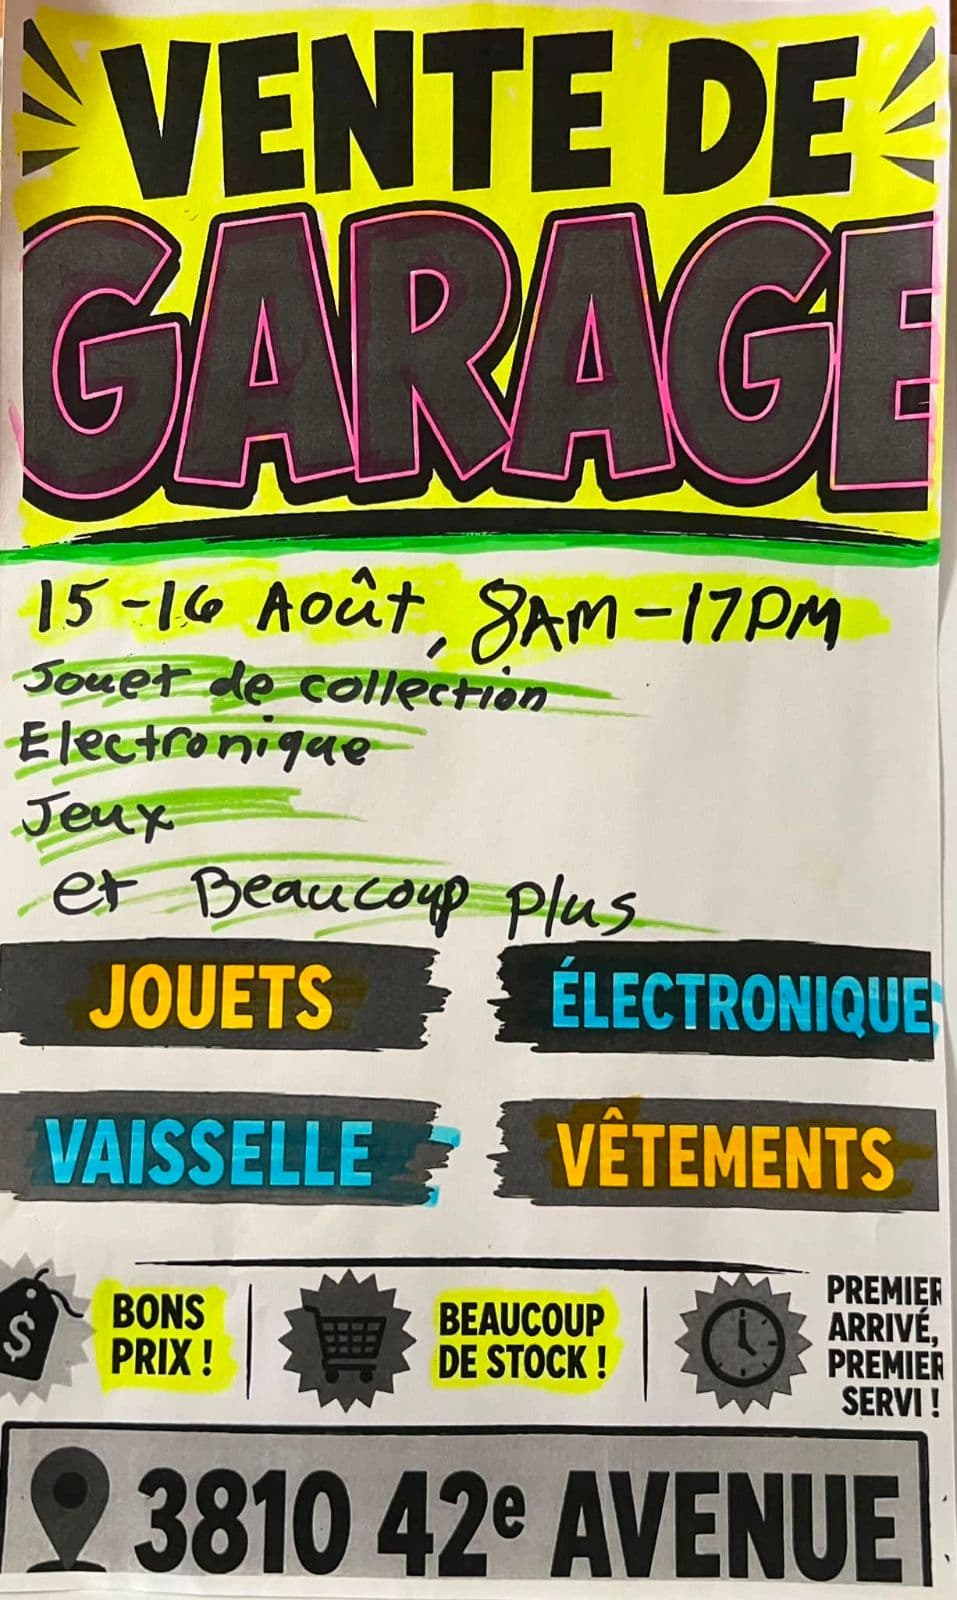 VENTE DE
GARAGE
15-16 Août, 8AM-17PM
Jouet de collection
Electronique
Jeux
et Beaucoup Plus
JOUETS
ÉLECTRONIQUE
VAISSELLE
VÊTEMENTS
$
BONS
PRIX !
BEAUCOUP
DE STOCK !
PREMIER
ARRIVÉ,
PREMIER
SERVI !
3810 42e AVENUE